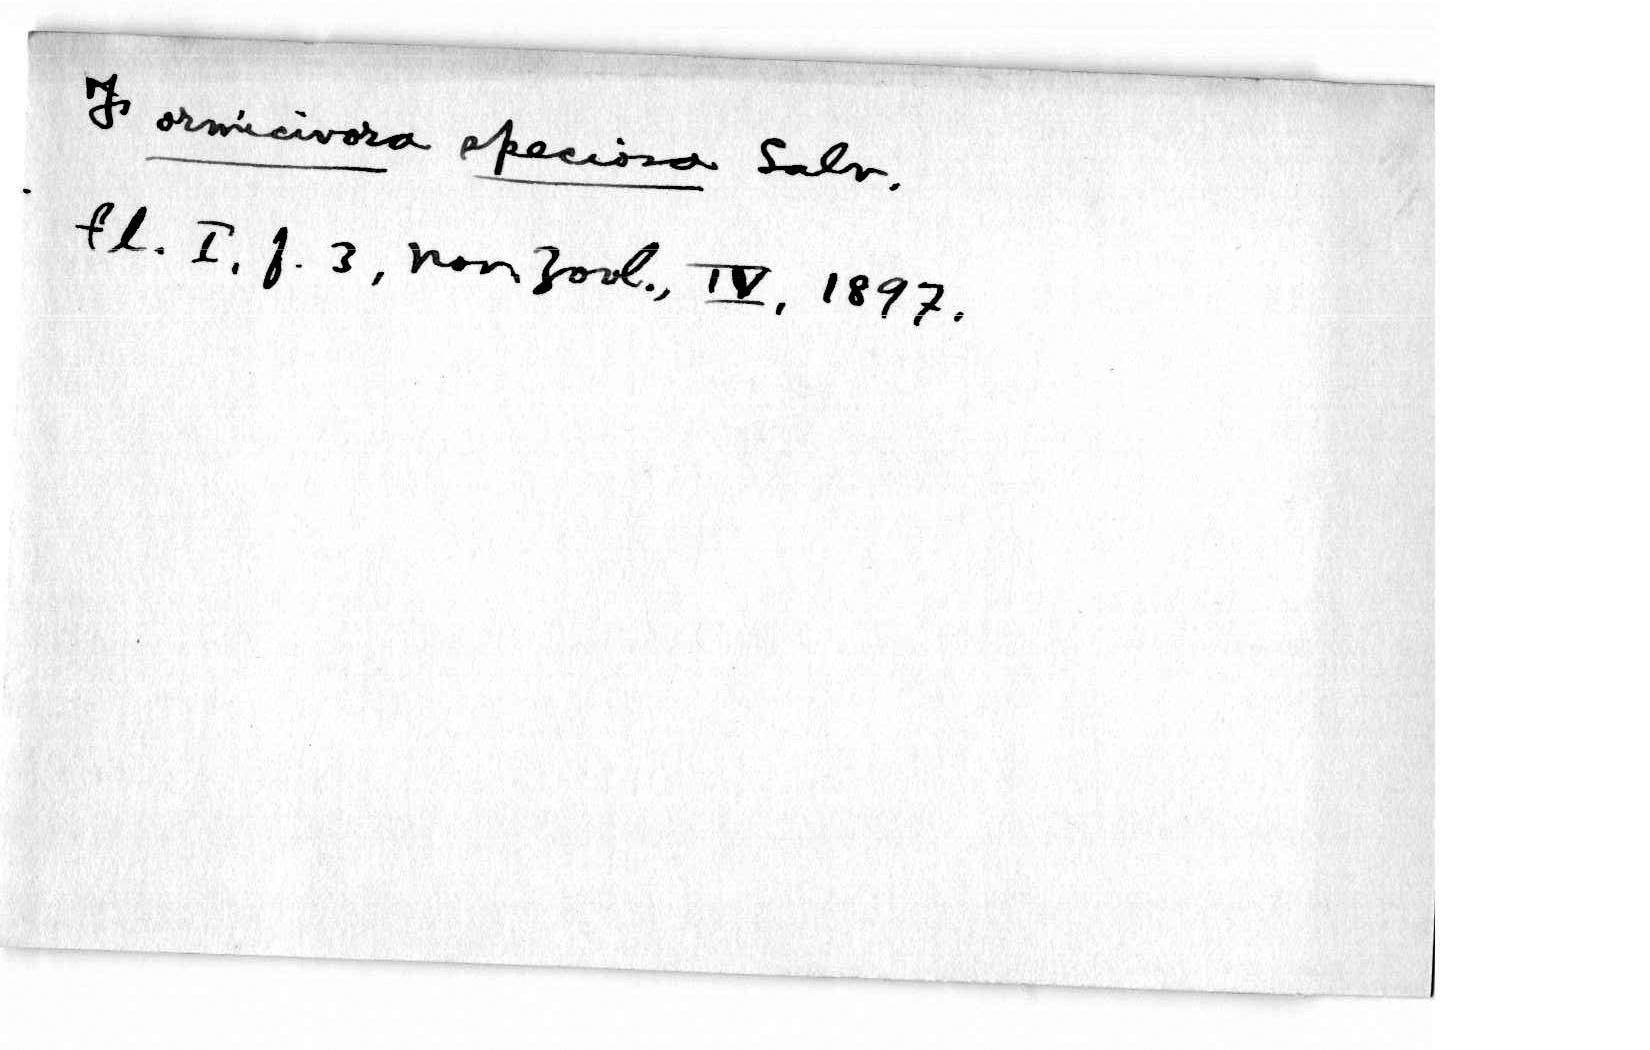 Formicivora speciosa Salv.
Pl. I, f. 3, Nov. Zool., IV, 1897.